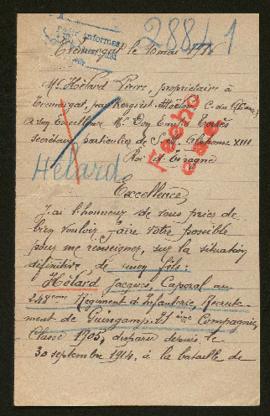 28841
Trémargat le 10 mai 1915
Mr Hélard Pierre, propriétaire à
Trémargat, par Kergrist Moëlou, C. du Nord,
à Son Excellence Mr Don Emilio Torrès
secrétaire particulier de S. M. Alphonse XIII
Roi d'Espagne
Fecho
Hélard
Excellence
J'ai l'honneur de vous prier de
bien vouloir faire votre possible
pour me renseigner sur la situation
définitive de mon fils:
Hélard Jacques, Caporal au
248eme Régiment d'Infanterie, Recrute-
ment de Guingamp, 21eme Compagnie,
Classe 1905, disparu depuis le
30 septembre 1914, à la bataille de